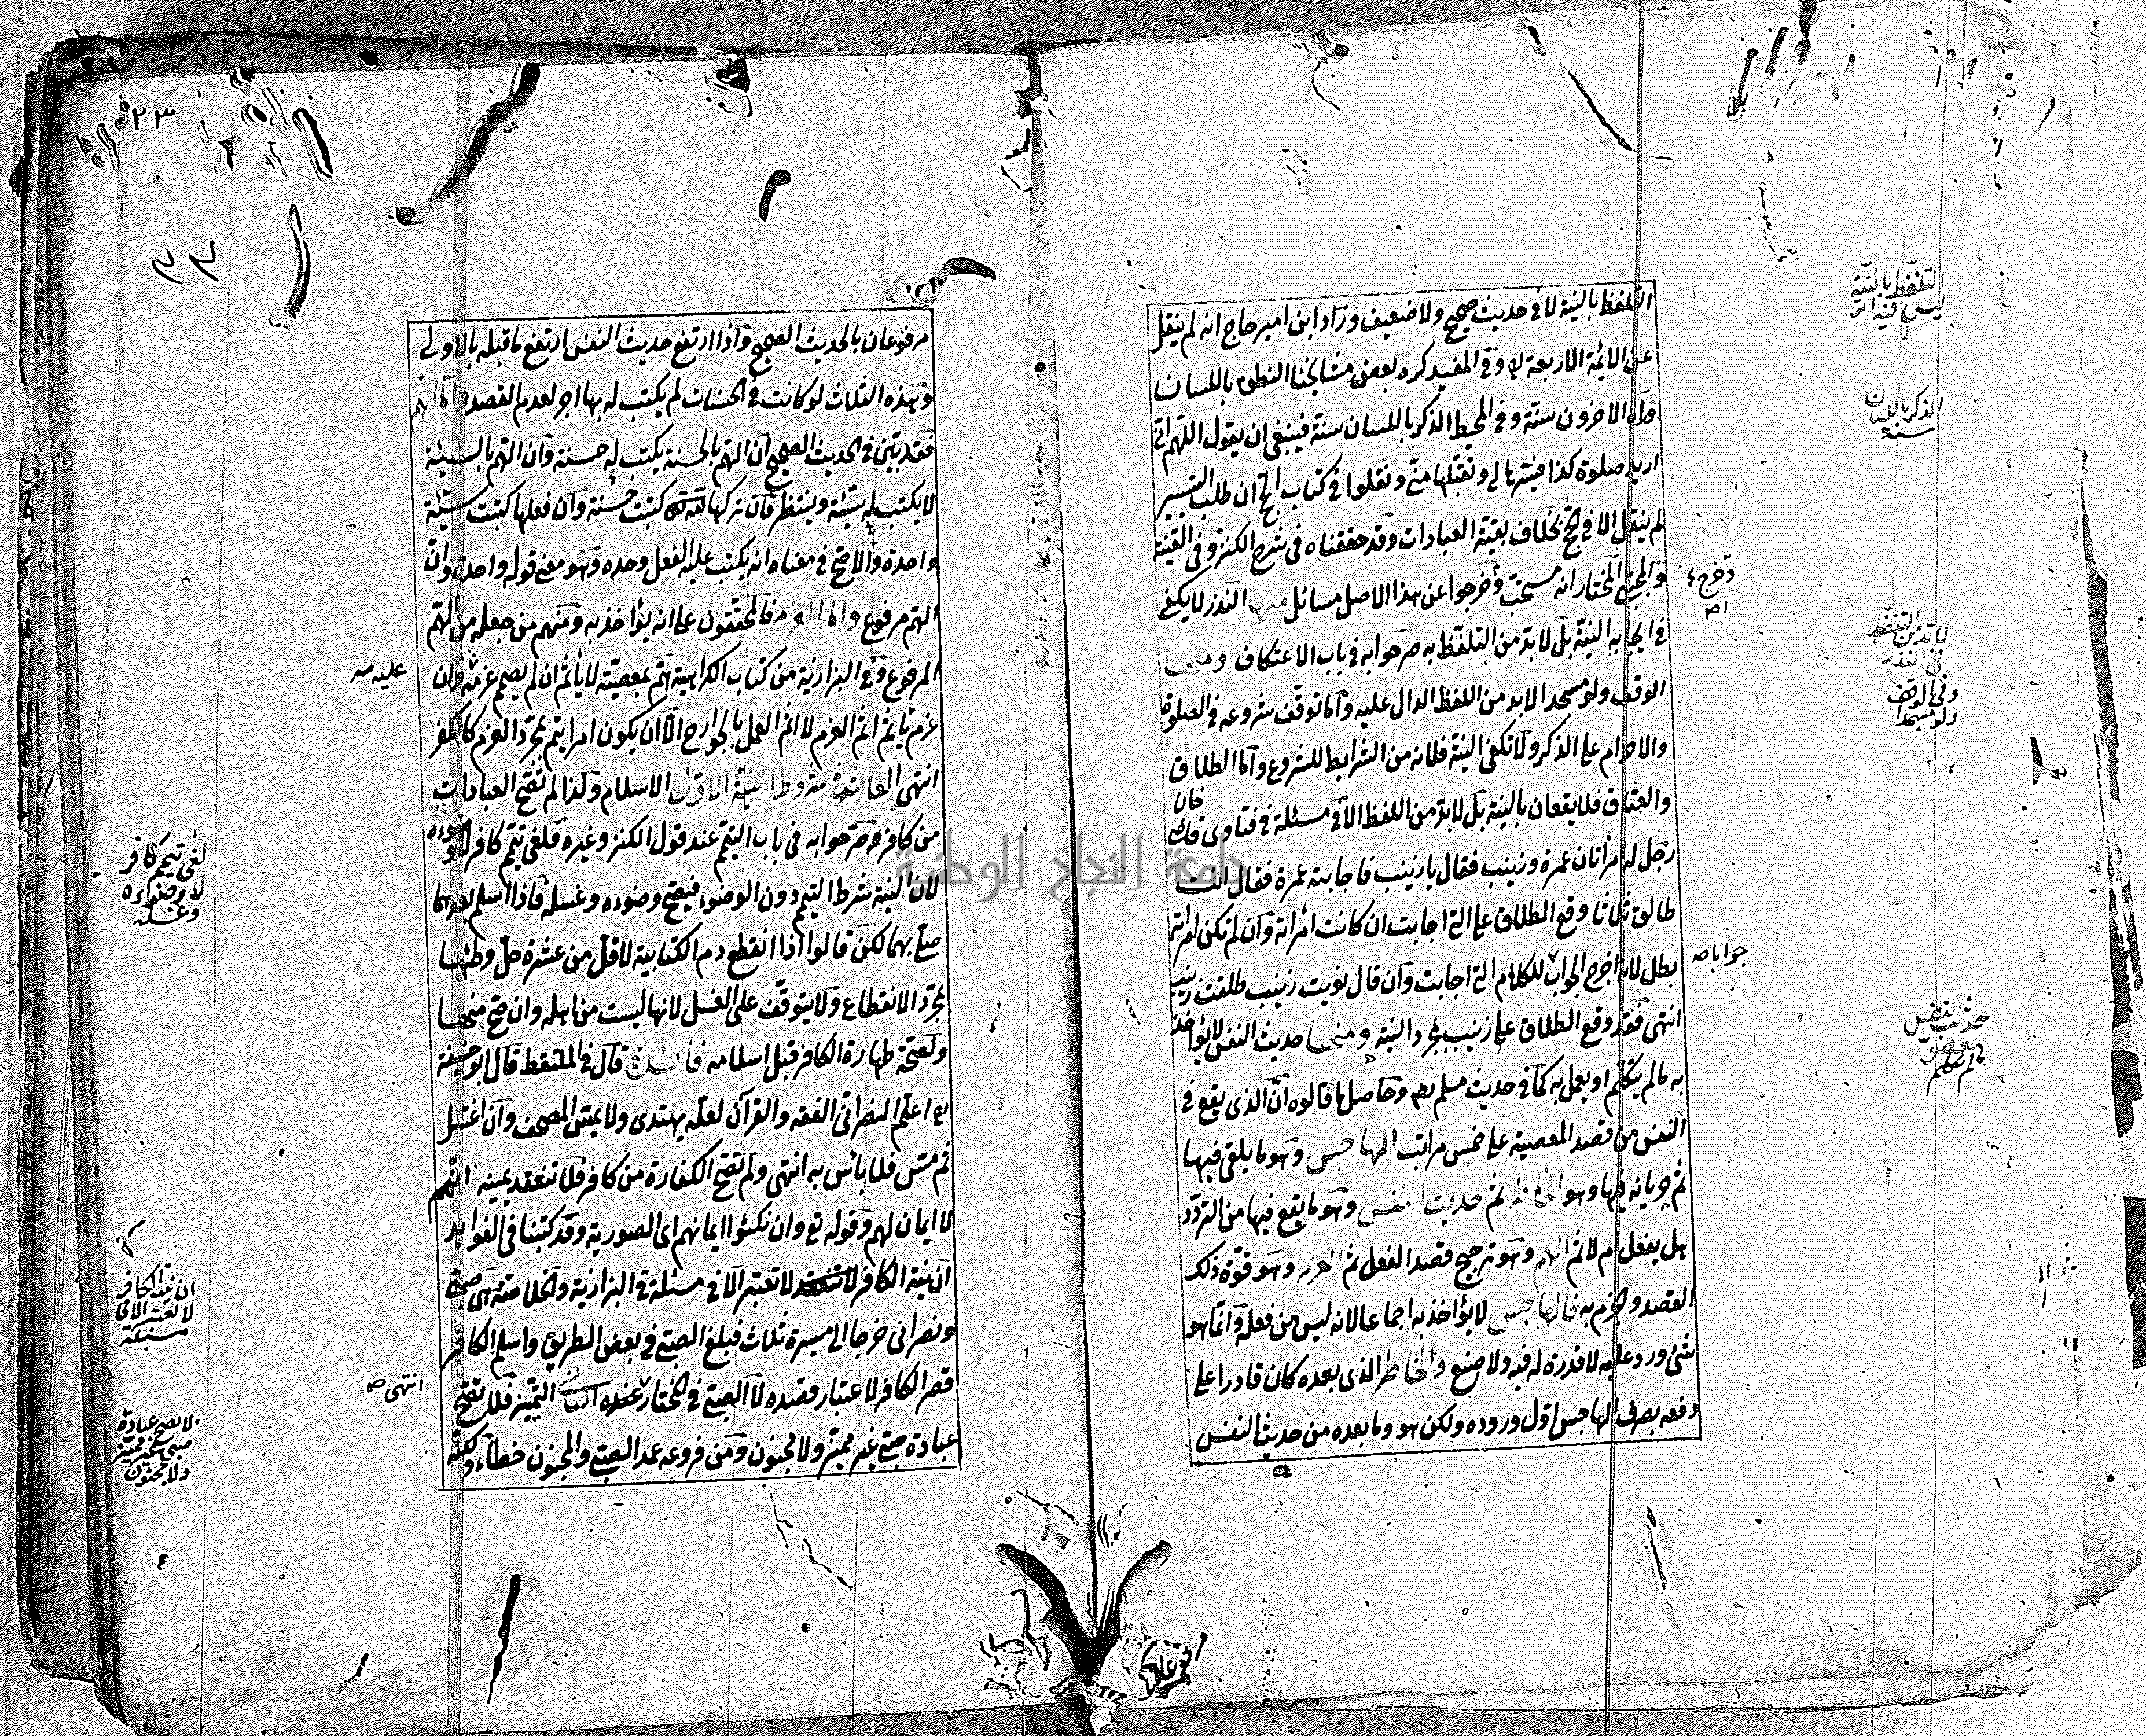 التلفظ بالنية لا في حديث صحيح ولا ضعيف وزاد ابن امير حاج انه لم ينقل
عن الائمة الاربعة وفي المفيد كره بعض مشايخنا النطق باللسان
ورآه الآخرون سنة وفي المحيط الذكر باللسان سنة فينبغي ان يقول اللهم اني
اريد صلوة كذا فيسرها لي وتقبلها مني ونقلوا في كتاب الحج ان طلب التيسير
لم ينقل الا في الحج بخلاف بقية العبادات وقد حققناه في شرح الكنز وفي القنية
والمجتبى المختار انه مستحب وخرجوا عن هذا الاصل مسائل منها النذر لا يكفي
في ايجابه النية بل لا بد من التلفظ به صرحوا به في باب الاعتكاف ومنها
الوقف ولو مسجدا لا بد من اللفظ الدال عليه واما توقف شروعه في الصلوة
والاحرام على الذكر ولا تكفي النية فلانه من الشرايط للشروع واما الطلاق
والعتاق فلا يقعان بالنية بل لا بد من اللفظ الا في مسئلة في فتاوى قاضي خان
رجل له امرأتان عمرة وزينب فقال يا زينب فاجابته عمرة فقال انت
طالق ثلاثا وقع الطلاق على التي اجابت ان كانت امرأته وان لم تكن امرأته
بطل لانه اخرج الجواب للكلام التي اجابت وان قال نويت زينب طلقت زينب
انتهى فقد وقع الطلاق على زينب بمجرد النية ومنها حديث النفس لا يؤاخذ
به ما لم يتكلم او يعمل به كما في حديث مسلم وحاصل ما قالوه ان الذي يقع في
النفس من قصد المعصية على خمس مراتب الهاجس وهو ما يلقى فيها
ثم جريانه فيها وهو الخاطر ثم حديث النفس وهو ما يقع فيها من التردد
هل يفعل ام لا ثم الهم وهو ترجيح قصد الفعل ثم العزم وهو قوة ذلك
القصد والجزم به فالهاجس لا يؤاخذ به اجماعا لانه ليس من فعله وانما هو
شئ ورد عليه لا قدرة له فيه ولا صنع والخاطر الذي بعده كان قادرا على
دفعه بصرف الهاجس اول وروده ولكن هو وما بعده من حديث النفس
التلفظ بالنية
ليس فيه اثر
الذكر باللسان
سنة
وخرج ع
صح
لا بد من التلفظ
في النذر
وفي الوقف
ولو مسجدا
جوابا صح
حديث النفس
معفو
ما لم يتكلم
٢٣
٣٣
مرفوعان بالحديث الصحيح واذا ارتفع حديث النفس ارتفع ما قبله بالاولى
وهذه الثلاث لو كانت في الحسنات لم يكتب له بها اجر لعدم القصد واما الهم
فقد بين في الحديث الصحيح ان الهم بالحسنة يكتب له حسنة وان الهم بالسيئة
لا يكتب له سيئة وينتظر فان تركها لله كتبت حسنة وان فعلها كتبت سيئة
واحدة والاصح في معناه انه يكتب عليه الفعل وحده وهو معنى قوله واحدة وان
الهم مرفوع واما العزم فالمحققون على انه يؤاخذ به ومنهم من جعله من الهم
المرفوع وفي البزازية من كتاب الكراهية هم بمعصية لا يأثم ان لم يصمم عزمه وان
عزم يأثم اثم العزم لا اثم العمل بالجوارح الا ان يكون امرا يتم بمجرد العزم كالكفر
انتهى العاشر في شروط النية الاول الاسلام ولذا لم تصح العبادات
من كافر صرحوا به في باب التيمم عند قول الكنز وغيره فلغى تيمم كافر لا وضوءه
لان النية شرط التيمم دون الوضوء فيصح وضوءه وغسله فاذا اسلم بعدهما
صلى بهما لكن قالوا اذا انقطع دم الكتابية لاقل من عشرة حل وطئها
بمجرد الانقطاع ولا يتوقف على الغسل لانها ليست من اهله وان صح منها
ولصحة طهارة الكافر قبل اسلامه فائدة قال في الملتقط قال ابو حنيفة
اعلم النصراني الفقه والقرآن لعله يهتدي ولا يمس المصحف وان اغتسل
ثم مس فلا بأس به انتهى ولم تصح الكفارة من كافر فلا تنعقد يمينه انهم
لا ايمان لهم وقوله تع وان نكثوا ايمانهم اي الصورية وقد كتبنا في الفوايد
ان نية الكافر لا تعتبر الا في مسئلة في البزازية والخلاصة هي صبي
ونصراني خرجا الى مسيرة ثلاث فبلغ الصبي في بعض الطريق واسلم الكافر
قصر الكافر لاعتبار قصده لا الصبي في المختار عنده الثاني التمييز فلا تصح
عبادة صبي غير مميز ولا مجنون ومن فروعه عمد الصبي والمجنون خطاء ولكنه
عليه صح
لغى تيمم كافر
لا وضوءه
وغسله
ان نية الكافر
لا تعتبر الا في
مسئلة
انتهى صح
لا تصح عبادة
صبي غير مميز
ولا مجنون
جامعة النجاح الوطنية